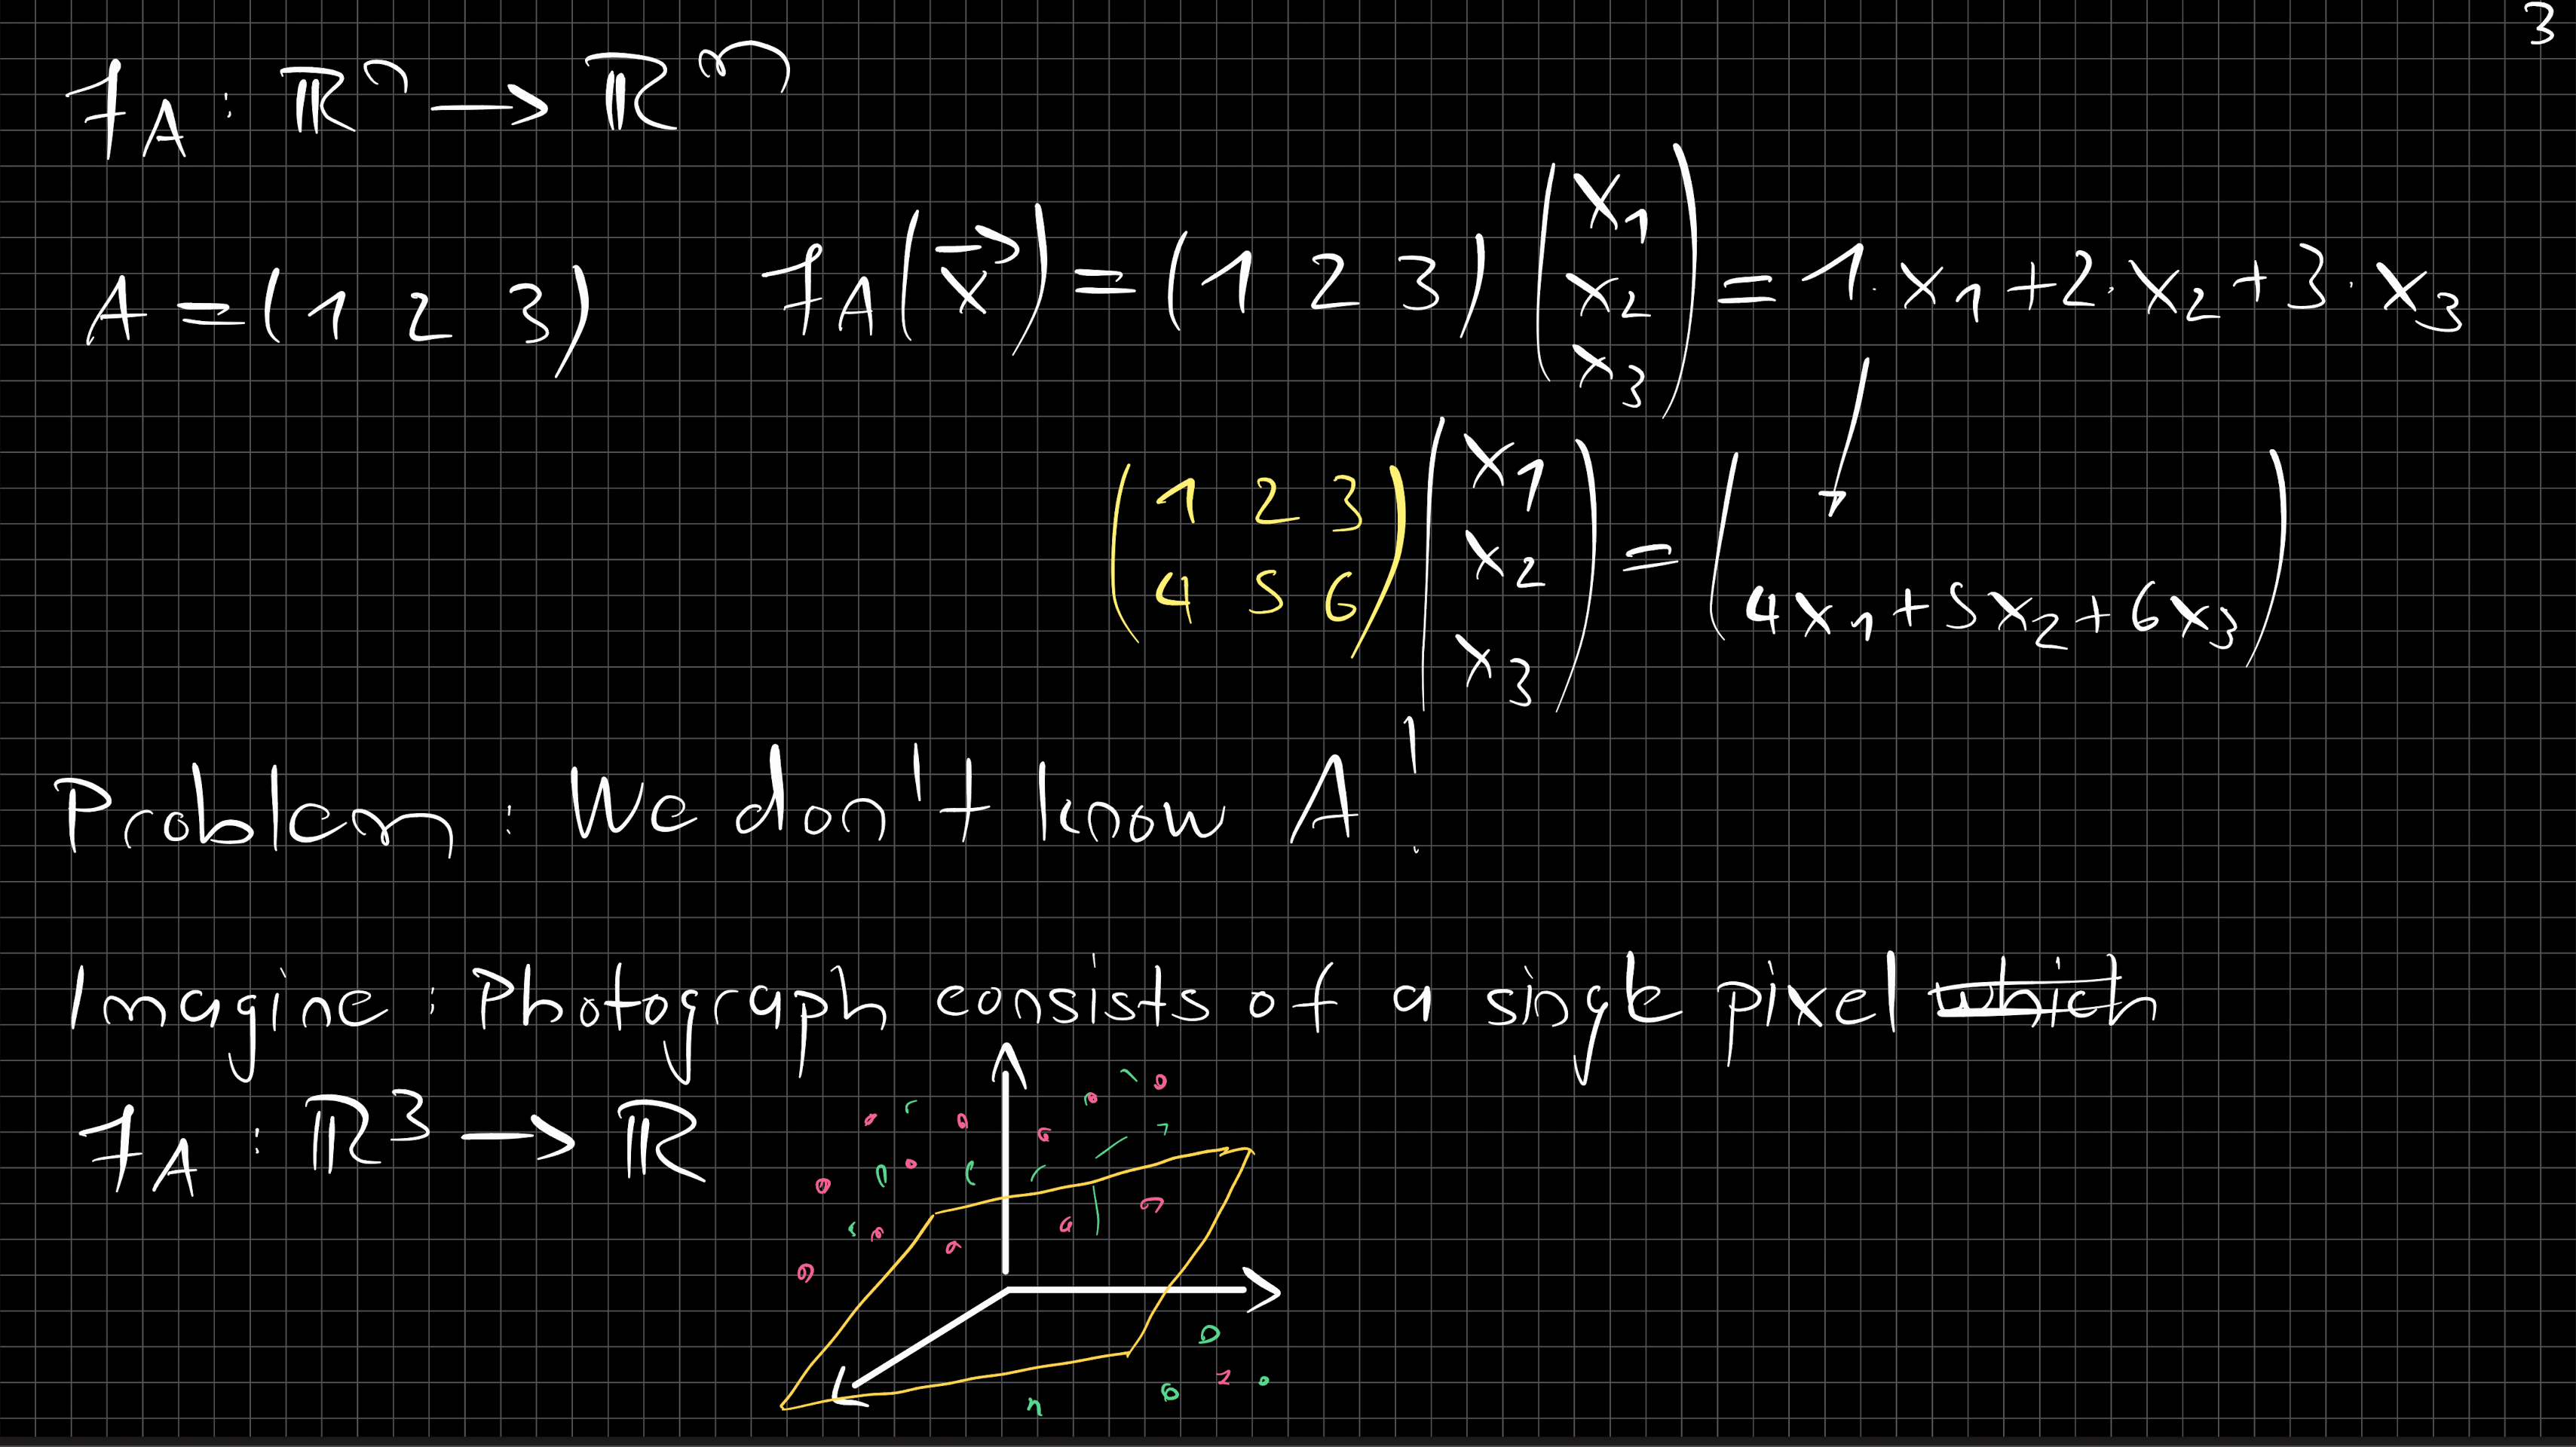 3
f_A : ℝⁿ → ℝᵐ
A = (1 2 3)    f_A(x⃗) = (1 2 3) (x₁ x₂ x₃) = 1·x₁ + 2·x₂ + 3·x₃
(1 2 3 / 4 5 6) (x₁ x₂ x₃) = (4x₁ + 5x₂ + 6x₃)
Problem: We don't know A!
Imagine: Photograph consists of a single pixel which
f_A : ℝ³ → ℝ